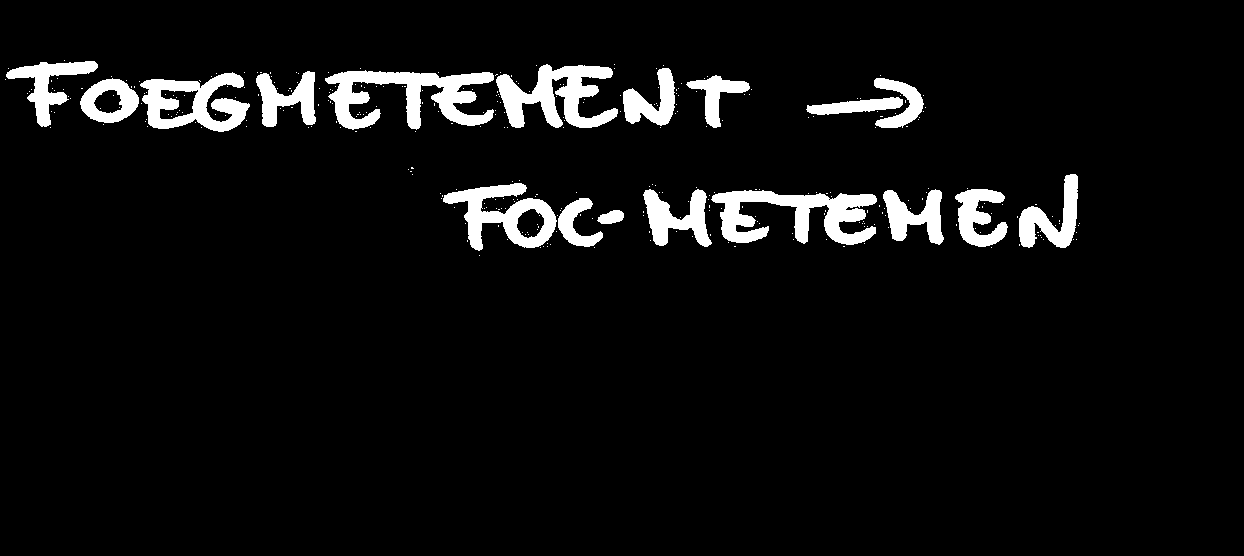 FOEGMETEMENT →
FOC-METEMEN